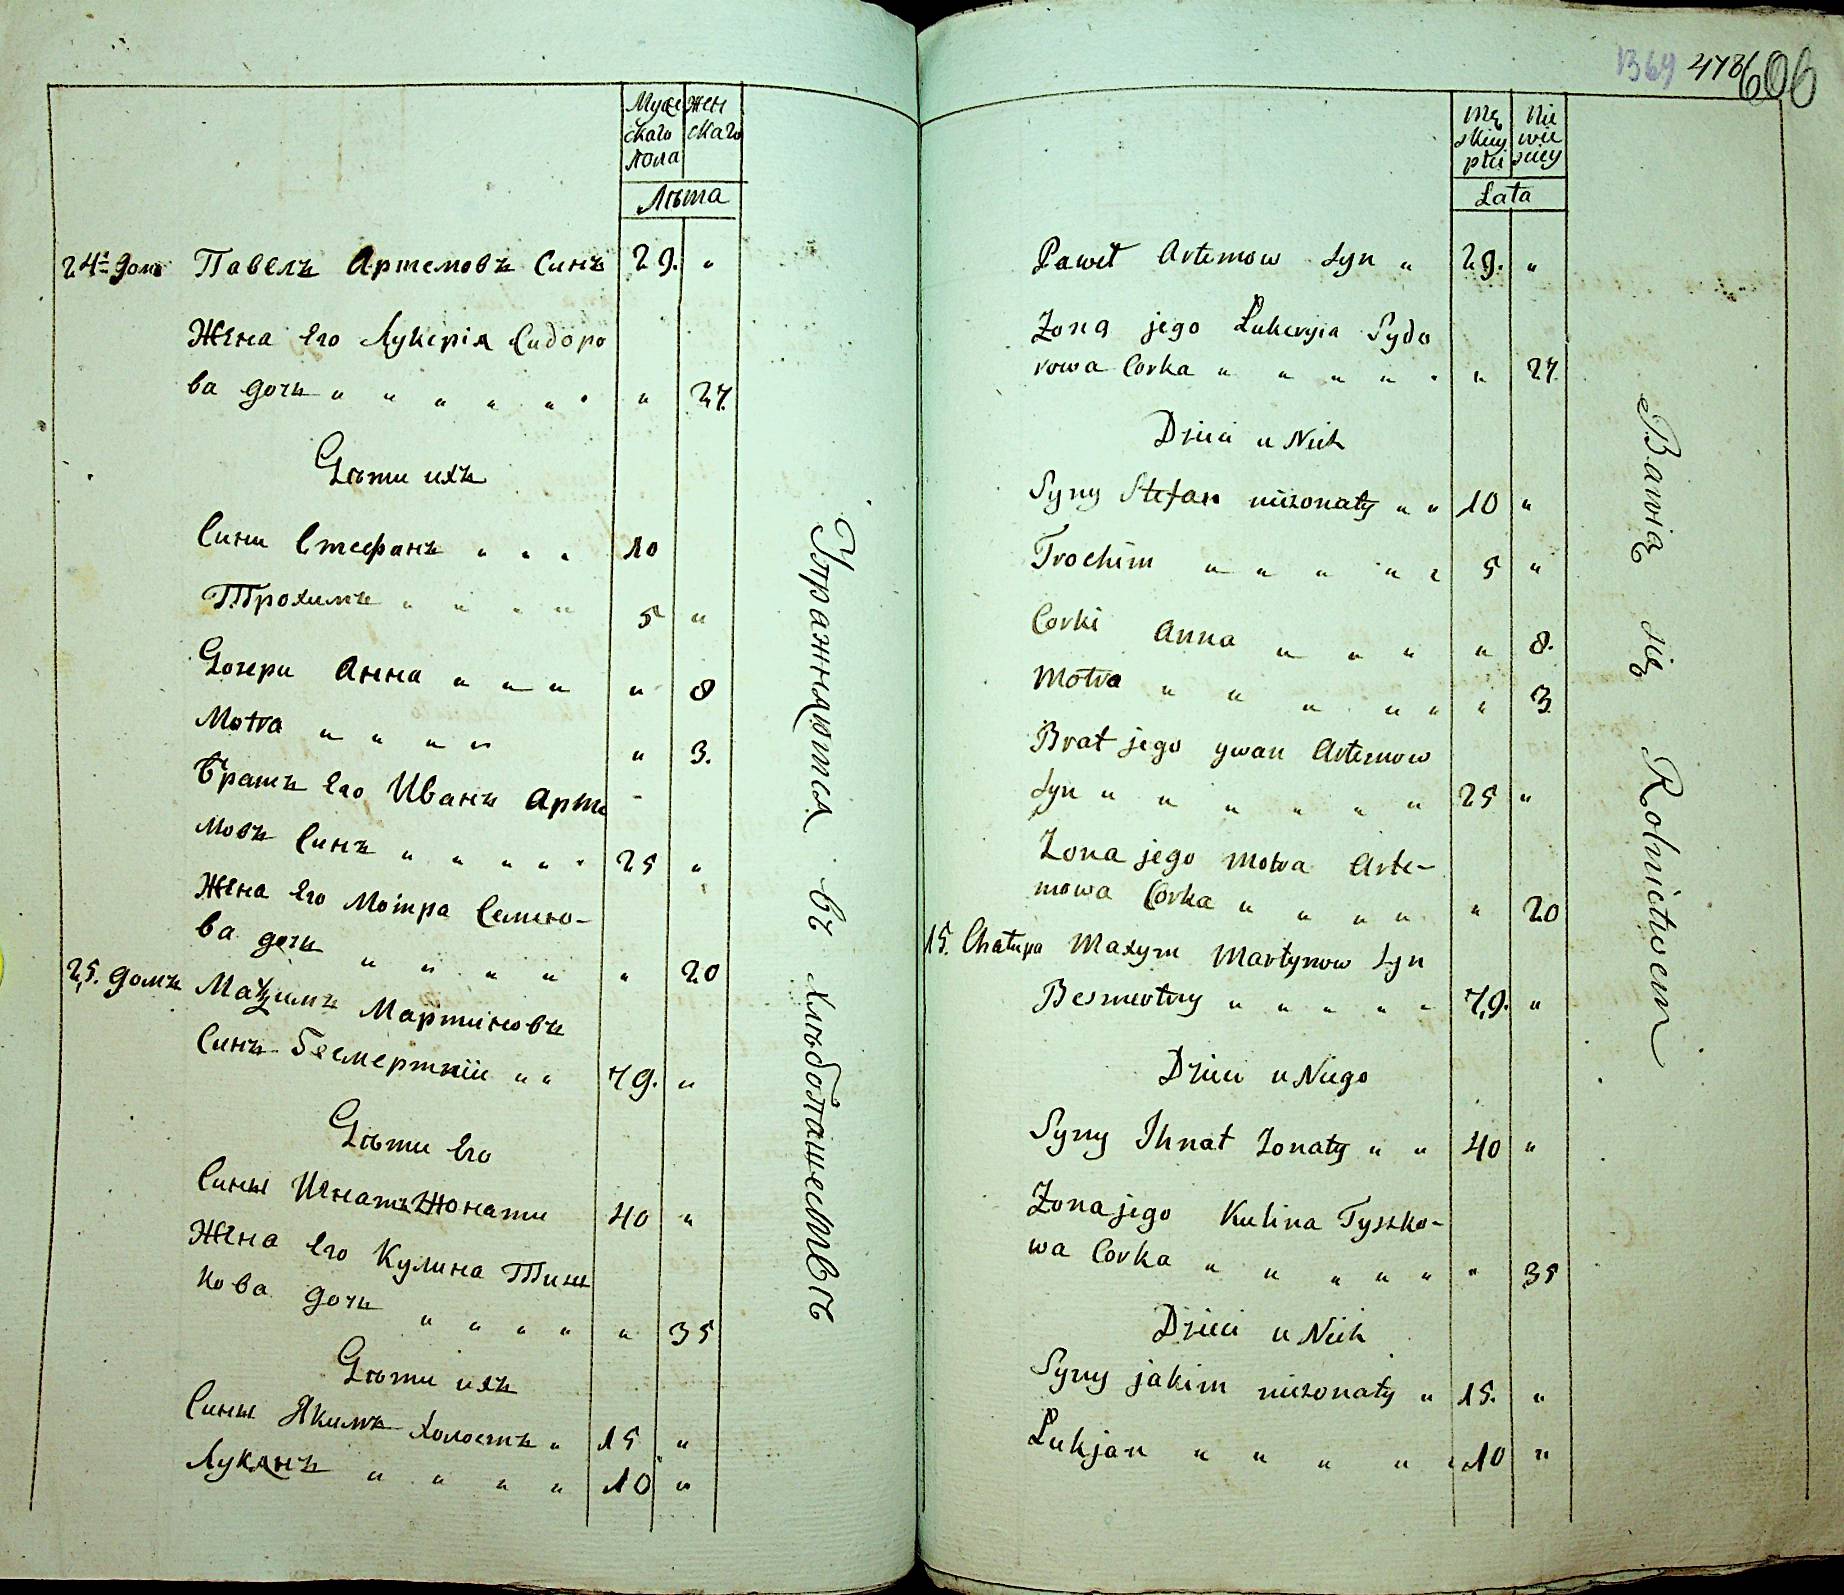 Муже
скаго
пола
жен
скаго
Лѣта
24й домъ Павелъ Артемовъ Синъ 29. "
Жена Его Лукерія Сидоро
ва дочь " " " " " " " 27.
Дѣти ихъ
Сини Стефанъ " " " 10
Трохимъ " " " " 5 "
Дочери Анна " " " " 8
Motra " " " " " 3.
Братъ Его Иванъ Арте
мовъ Синъ " " " " " 25 "
Жена Его Мотра Семено-
ва дочь " " " " " 20
25. домъ Мақимъ Мартиновъ
Синъ Бесмертній " " 79. "
Дѣти Его
Сины Игнатъ Жонати 40 "
Жена Его Кулина Тиш
кова дочь " " " " " 35
Дѣти ихъ
Сины Якимъ Холостъ " 15 "
Лукянъ " " " " 10 "
Упражняются въ хлѣбопашествѣ
1369 478 606
Mę
skiey
płci
Nie
wie
sciey
Lata
Paweł Artemow Syn " 29. "
Zona jego Łukeryia Sydo
rowa Corka " " " " " " 27.
Dzieci u Nich
Syny Stefan nieżonaty " " 10 "
Trochim " " " " " 5 "
Corki Anna " " " " 8.
Motra " " " " " " 3
Brat jego ywan Artemow
Syn " " " " " " 25 "
Zona jego Motra Arte-
mowa Corka " " " " " 20
15. Chałupa Maxym Martynow Syn
Besmertny " " " " " 79. "
Dzieci u Niego
Syny Ihnat Zonaty " " 40 "
Zona jego Kulina Tyszko-
wa Corka " " " " " " 35
Dzieci u Nich
Syny jakim nieżonaty " 15. "
Łukjan " " " " " 10 "
Bawią się Rolnictwem